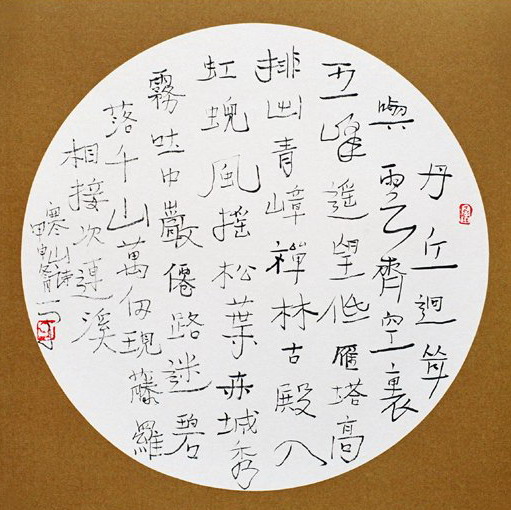 丹丘迥聳
與雲齊空裏
五峰遙望低雁塔高
排出青嶂禪林古殿入
虹蜺風搖松葉赤城秀
霧吐中巖僊路迷碧
落千山萬仞現藤蘿
相接次連溪
寒山詩
甲申